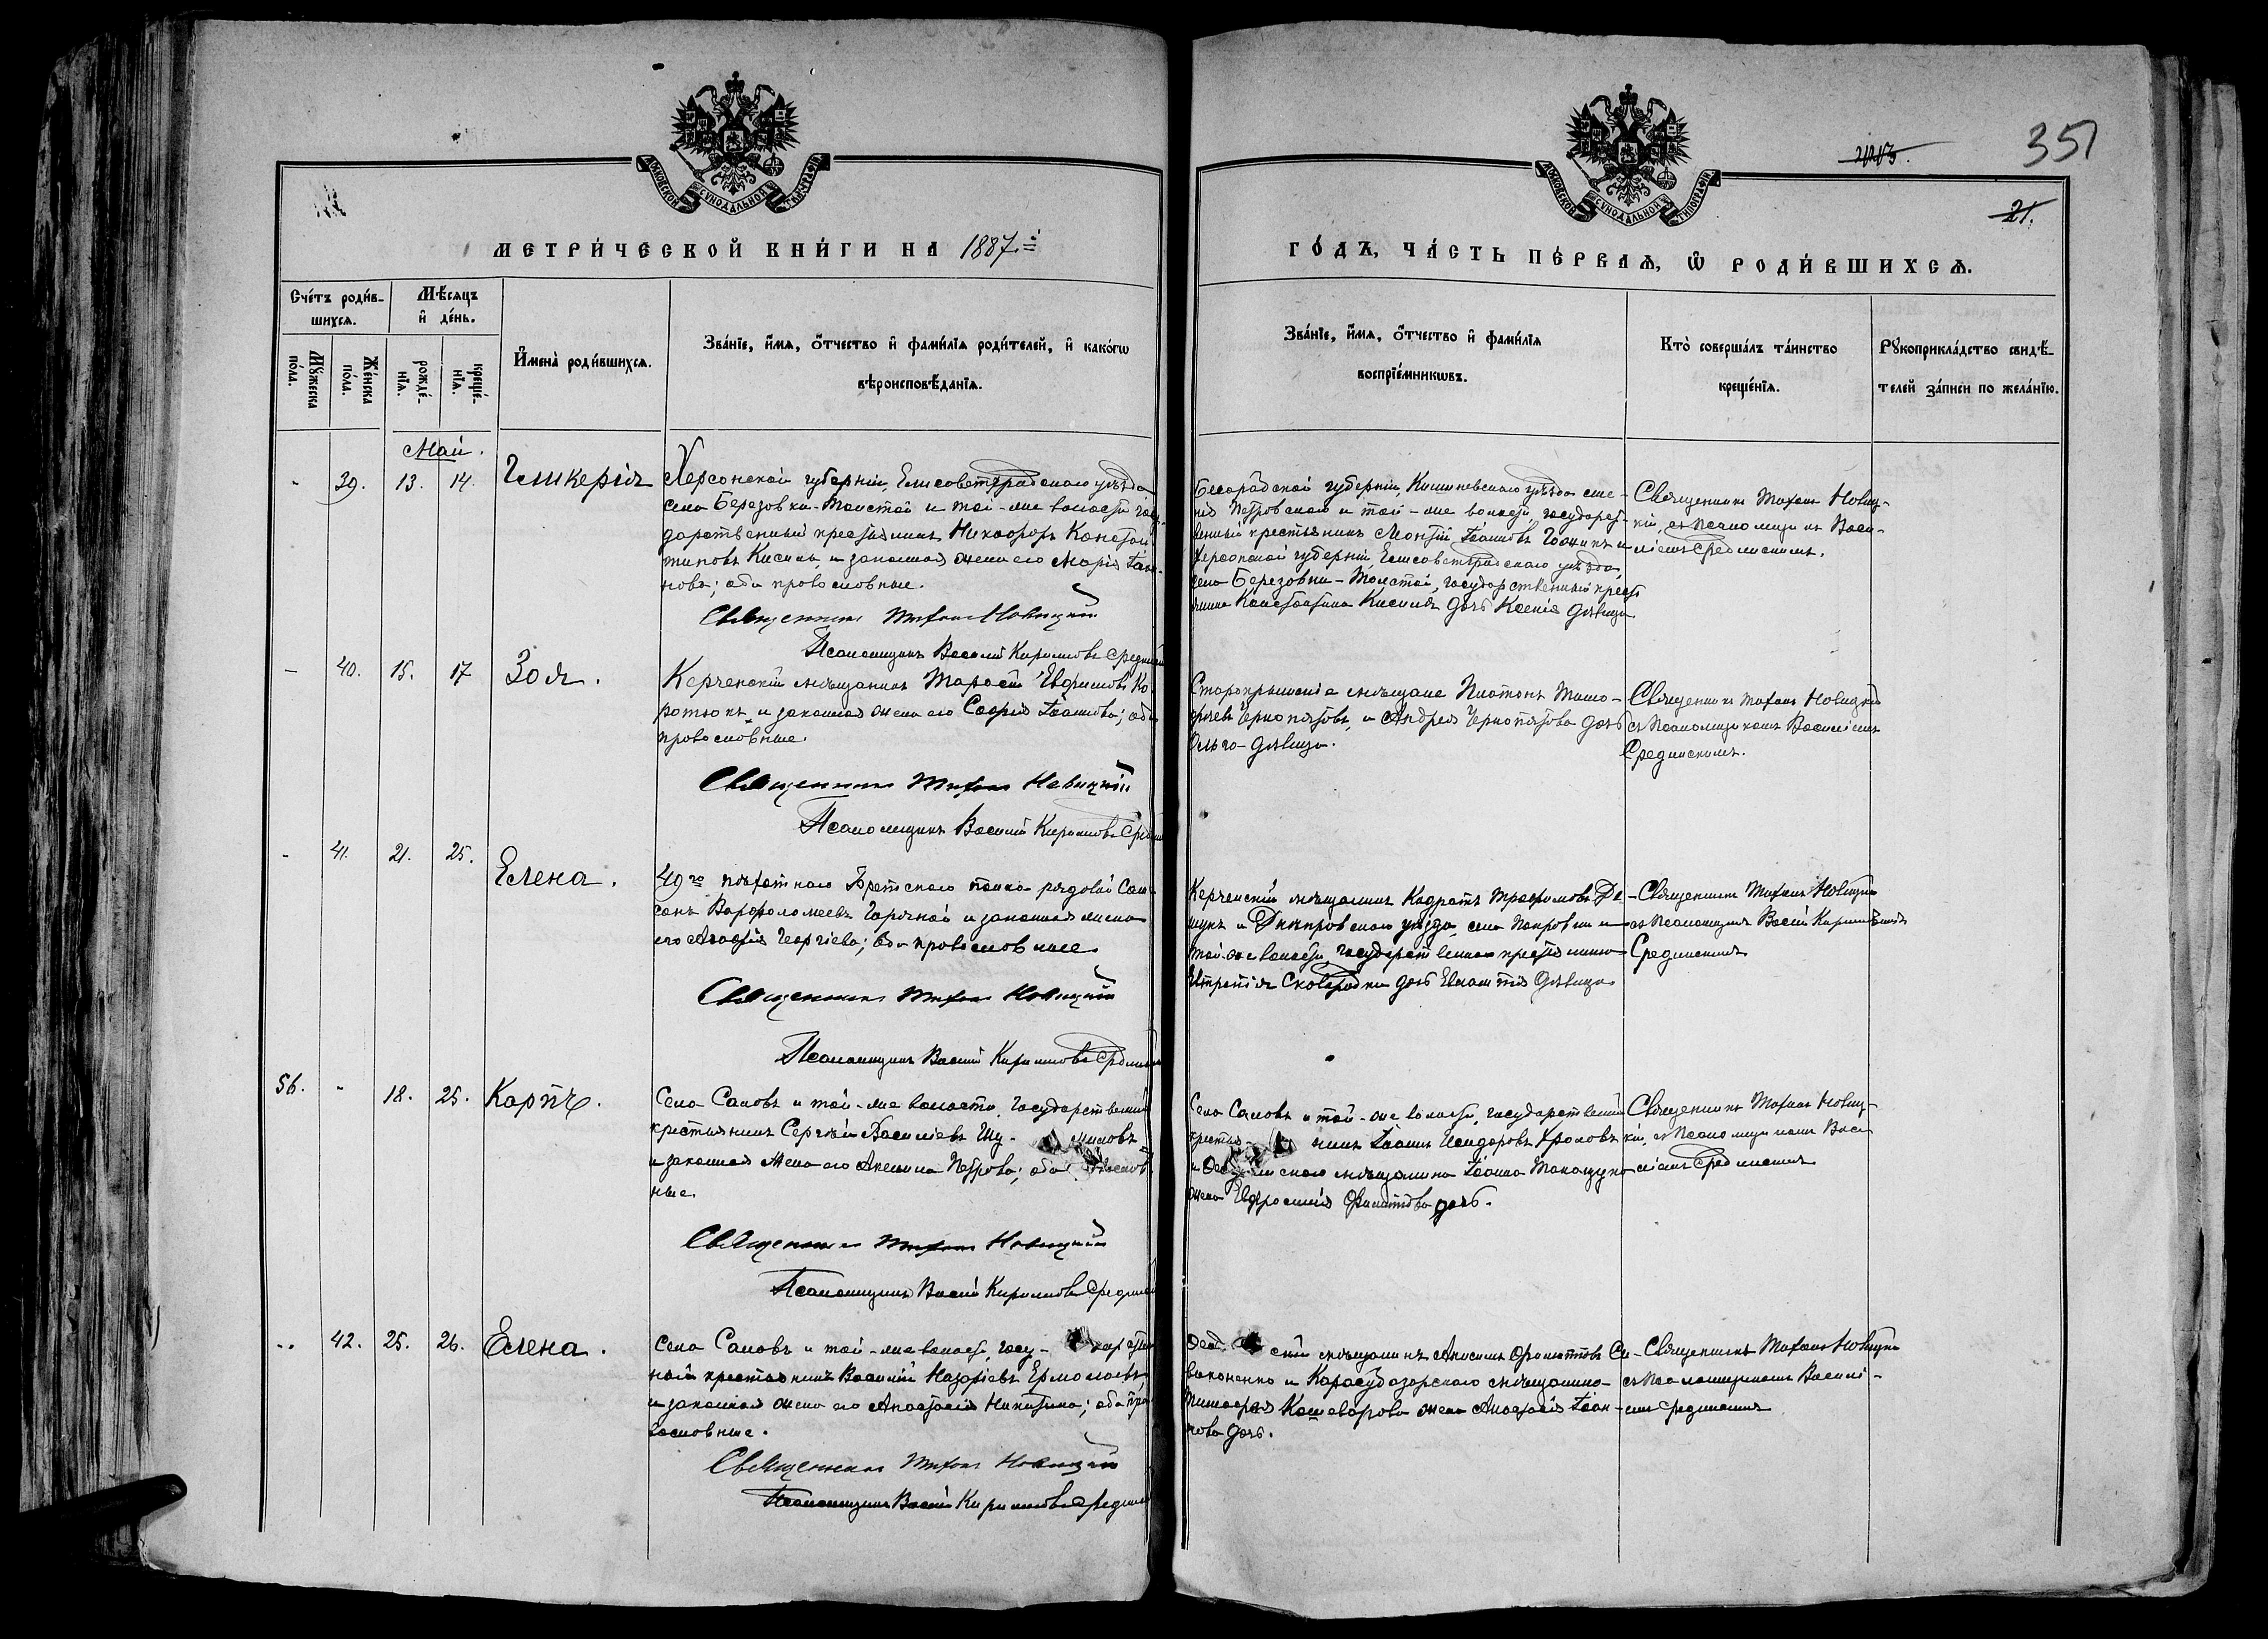 351
21.
МЕТРИ́ЧЕСКОЙ КНИ́ГИ НА 1887.й
ГО́ДЪ, ЧА́СТЬ ПЕ́РВАЯ, Ѡ РОДИ́ВШИХСЯ.
МОСКОВСКОЙ СѴНОДАЛЬНОЙ ТИПОГРАФІИ
МОСКОВСКОЙ СѴНОДАЛЬНОЙ ТИПОГРАФІИ
Сче́тъ роди́в-
шихся.
Мѣ́сяцъ
и҆ де́нь.
Мꙋ́жеска
по́ла.
Же́нска
по́ла.
рожде́-
нїя.
креще́-
нїя.
И҆мена̀ роди́вшихся.
Зва́нїе, и҆́мя, ѻ҆́тчество и҆ фами́лїя роди́телей, и҆ како́гѡ
вѣроисповѣ́данїя.
Зва́нїе, и҆́мя, ѻ҆́тчество и҆ фами́лїя
воспрїе́мникѡвъ.
Кто̀ соверша́лъ та́инство
креще́нїя.
Рꙋкоприкла́дство свидѣ́-
телей за́писи по жела́нїю.
Май.
- 39. 13. 14. Гликерія
Херсонской губерніи, Елисаветградскаго уѣзда
села Березовки-Толстой и той-же волости госу-
дарственный крестьянинъ Никифоръ Констан-
тиновъ Кисиль, и законная жена его Марія Іоан-
нова; оба православные.
Священникъ Тихонъ Новицкій
Псаломщикъ Василій Кирилловъ Срединскій
Бесарабской губерніи, Кишиневскаго уѣзда селе-
нія Петровскаго и той-же волости государст-
венный крестьянинъ Іоанновъ и
Херсонской губерніи, Елисаветградскаго уѣзда,
села Березовки-Толстой, государственный крест
янина Константина Кисиля дочь Ксенія дѣвица
Священникъ Тихонъ Новиц-
кій, съ Псаломщикомъ Васи-
ліемъ Срединскимъ.
- 40. 15. 17 Зоя.
Керченскій мѣщанинъ Тарасій Ко-
ротюкъ, и законная жена его Софія Іоаннова; оба
православные.
Священникъ Тихонъ Новицкій
Псаломщикъ Василій Кирилловъ Средин
Старокрымскіе мѣщане Платонъ Тимо-
феевъ Чернопятовъ, и Андрея Чернопятова дочь
Ольга-дѣвица.
Священникъ Тихонъ Новицкій
съ Псаломщикомъ Василіемъ
Срединскимъ.
- 41. 21. 25. Елена.
49го пѣхотнаго Брестскаго полка рядовой Сам-
сонъ Варфоломеевъ и законная жена
его Агафія Георгіева; оба православные.
Священникъ Тихонъ Новицкій
Псаломщикъ Василій Кирилловъ Средински
Керченскій мѣщанинъ Кодратъ Трофимовъ
и Днѣпровскаго уѣзда села Покровки и
той-же волости, государственнаго крестьянина
Сковородки дочь дѣвица
Священникъ Тихонъ Новицкій
съ Псаломщикомъ Василій Кирилловымъ
Срединскимъ
56. - 18. 25. Карпъ.
Села Саловъ и той-же волости, государственный
крестьянинъ Сергѣй Васильевъ
и законная жена его Акелина Петрова; оба православ
ные.
Священникъ Тихонъ Новицкій
Псаломщикъ Василій Кирилловъ Средински
Села Саловъ и той-же волости, государственный
крестья- нинъ Іоаннъ Исидоровъ Фроловъ
и мѣщанина Іоанна
жена Евфросинія Филиппова дочь.
Священникъ Тихонъ Новиц-
кій, съ Псаломщикомъ Васи-
ліемъ Срединскимъ
42. 25. 26. Елена.
Села Саловъ и той-же волости, госу- дарствен
ный крестьянинъ Василій Назаріевъ Ермолаевъ
и законная жена его Анастасія Никитина; оба пра-
вославные.
Священникъ Тихонъ Новицкій
Псаломщикъ Василій Кирилловъ Средински
Фео скій мѣщанинъ Си-
ваконенко и Карасубазарскаго мѣщанина-
Тимофея Кошеварова жена Анастасія Іоан-
нова дочь.
Священникъ Тихонъ Новицкій
съ Псаломщикомъ Васили-
емъ Срединскимъ